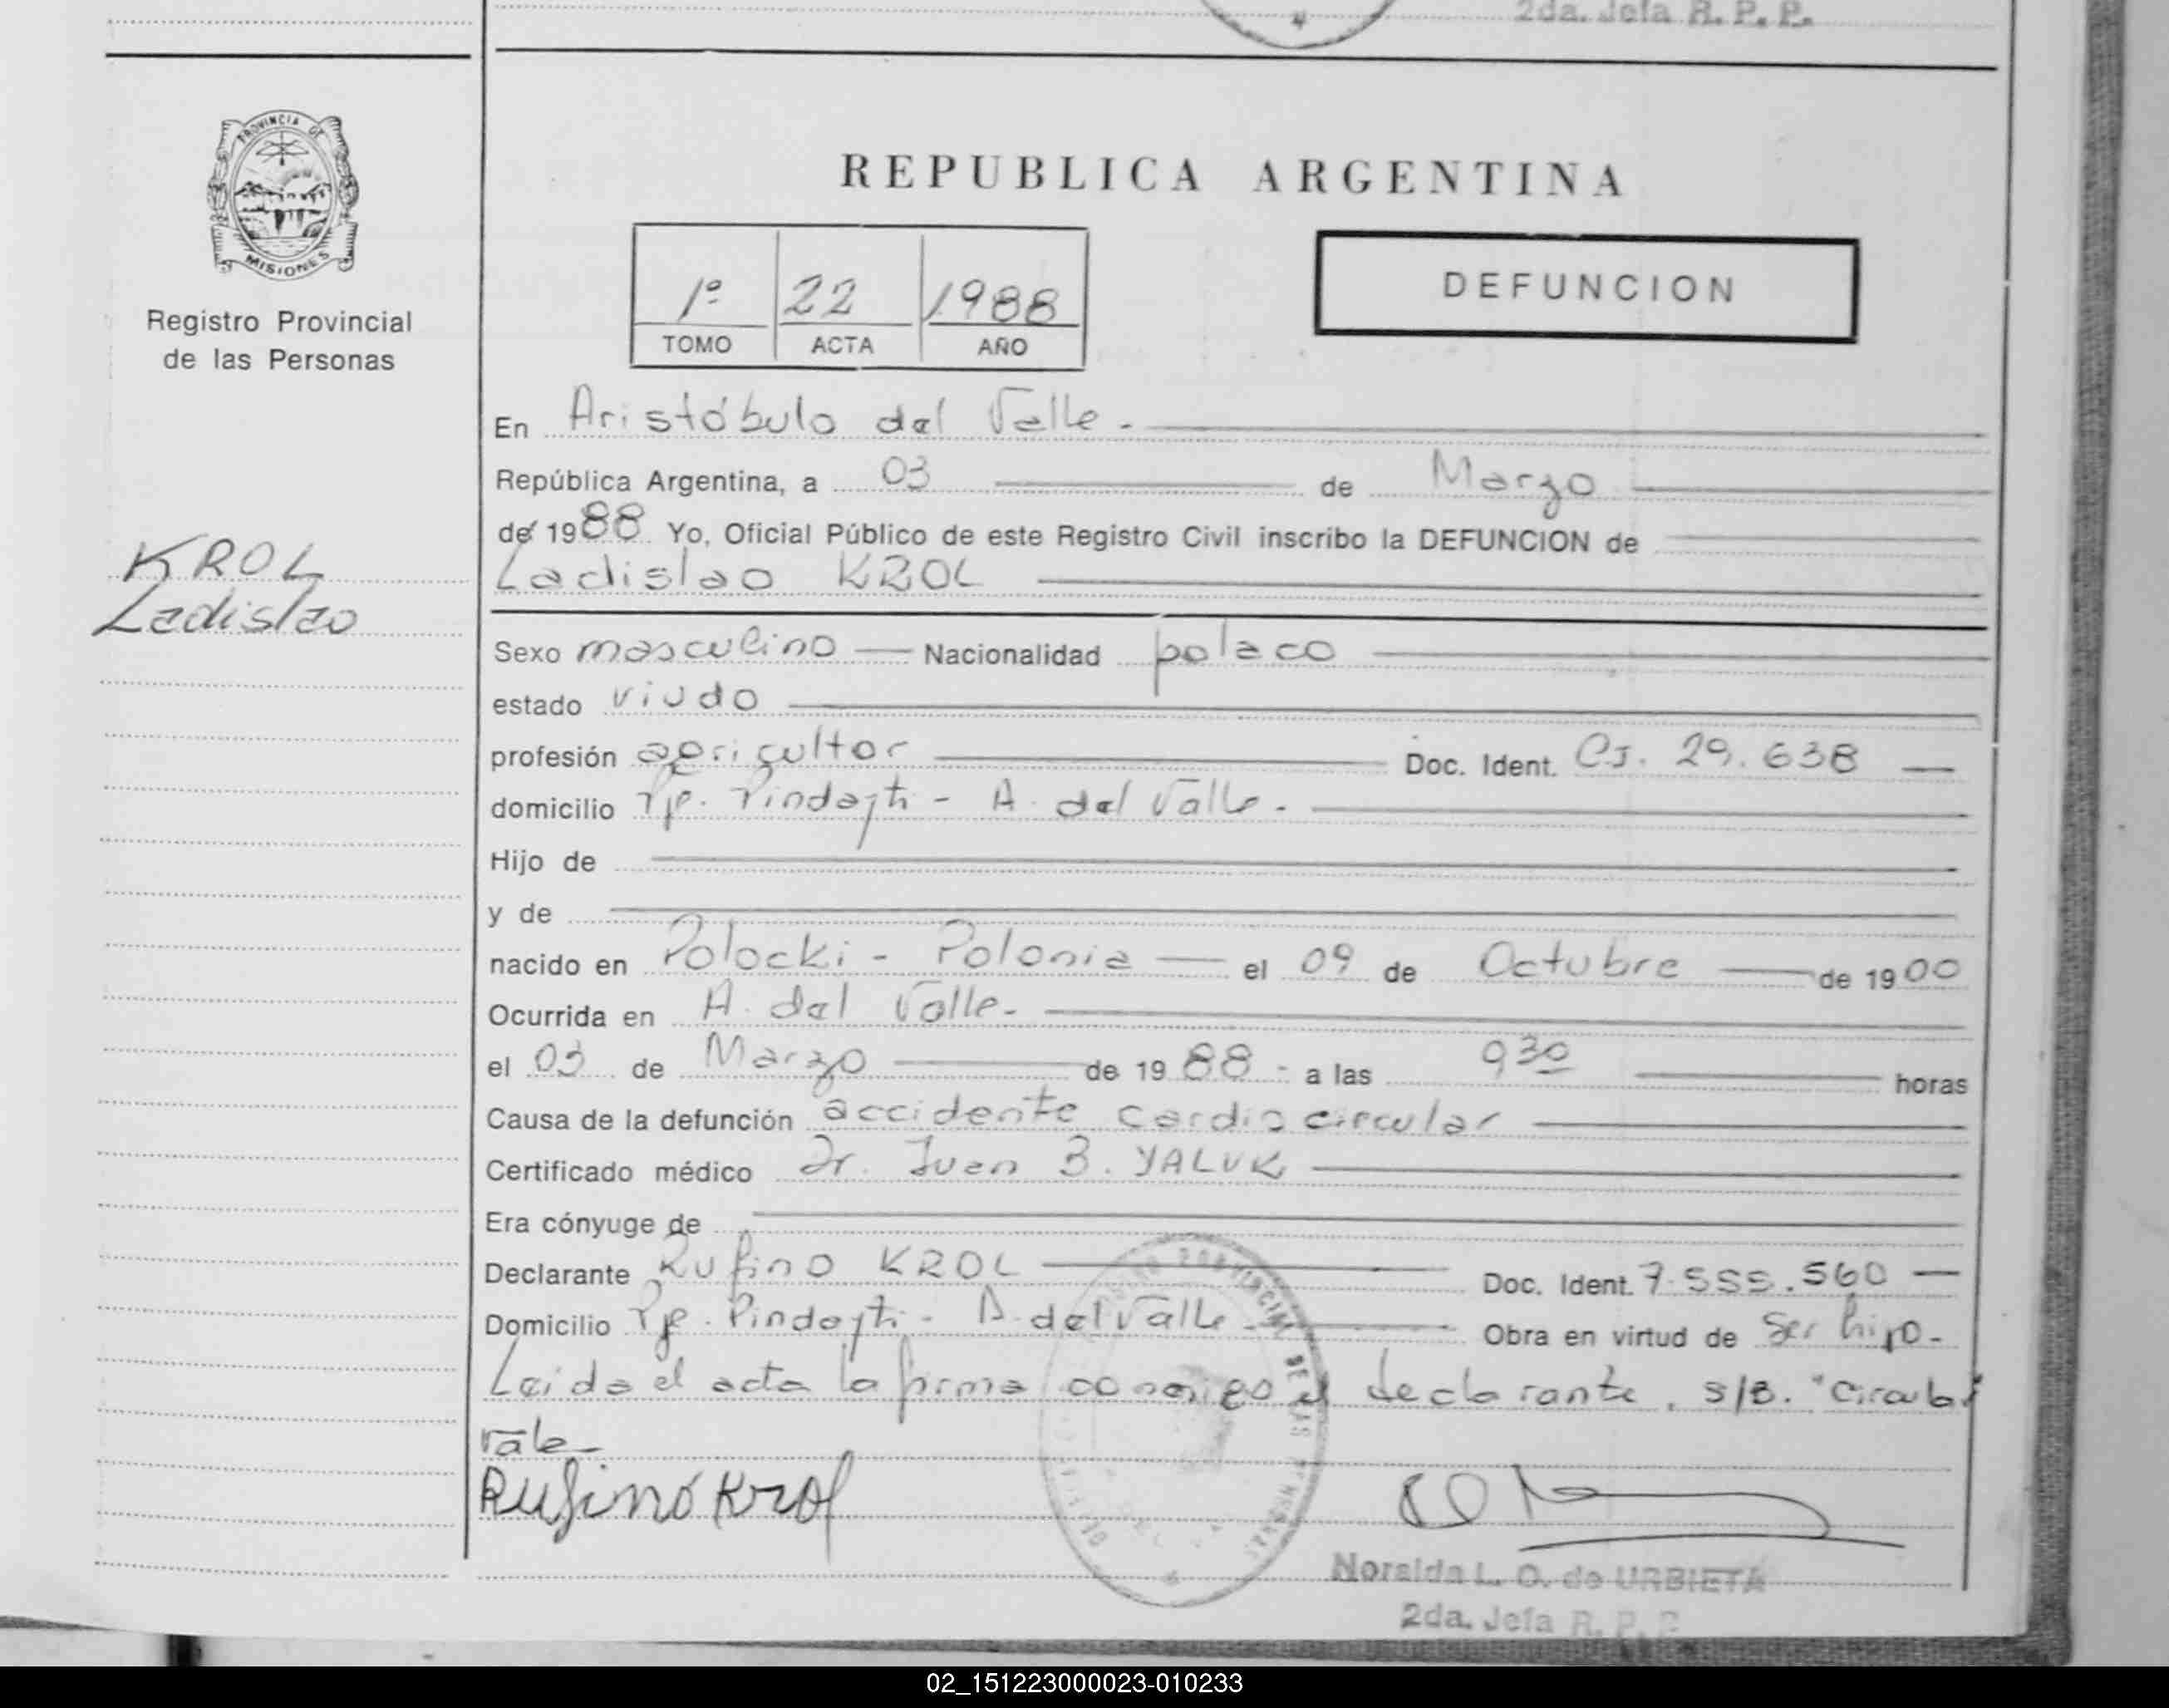 2da. Jefa R. P. P.
PROVINCIA DE
MISIONES
Registro Provincial
de las Personas
REPUBLICA ARGENTINA
1º 22 1988
TOMO ACTA AÑO
DEFUNCION
En Aristóbulo del Valle.
República Argentina, a 03 de Marzo
de 1988 Yo, Oficial Público de este Registro Civil inscribo la DEFUNCION de
Ladislao KROL
KROL
Ladislao
Sexo masculino Nacionalidad polaco
estado viudo
profesión agricultor Doc. Ident. CJ. 29.638
domicilio Pje. Pindayti - A. del Valle.
Hijo de
y de
nacido en Polocki - Polonia el 09 de Octubre de 1900
Ocurrida en A. del Valle.
el 03 de Marzo de 1988 - a las 930 horas
Causa de la defunción accidente cardio circular
Certificado médico Dr. Juan B. YALUK
Era cónyuge de
Declarante Rufino KROL Doc. Ident. 7.555.560
Domicilio Pje. Pindayti - A. del Valle - Obra en virtud de Ser hijo-
Leida el acta la firma conmigo el declarante. s/B. "Circular
vale-
Rufino Krol
Noralda L. O. de URBIETA
2da. Jefa R. P. P.
02_151223000023-010233